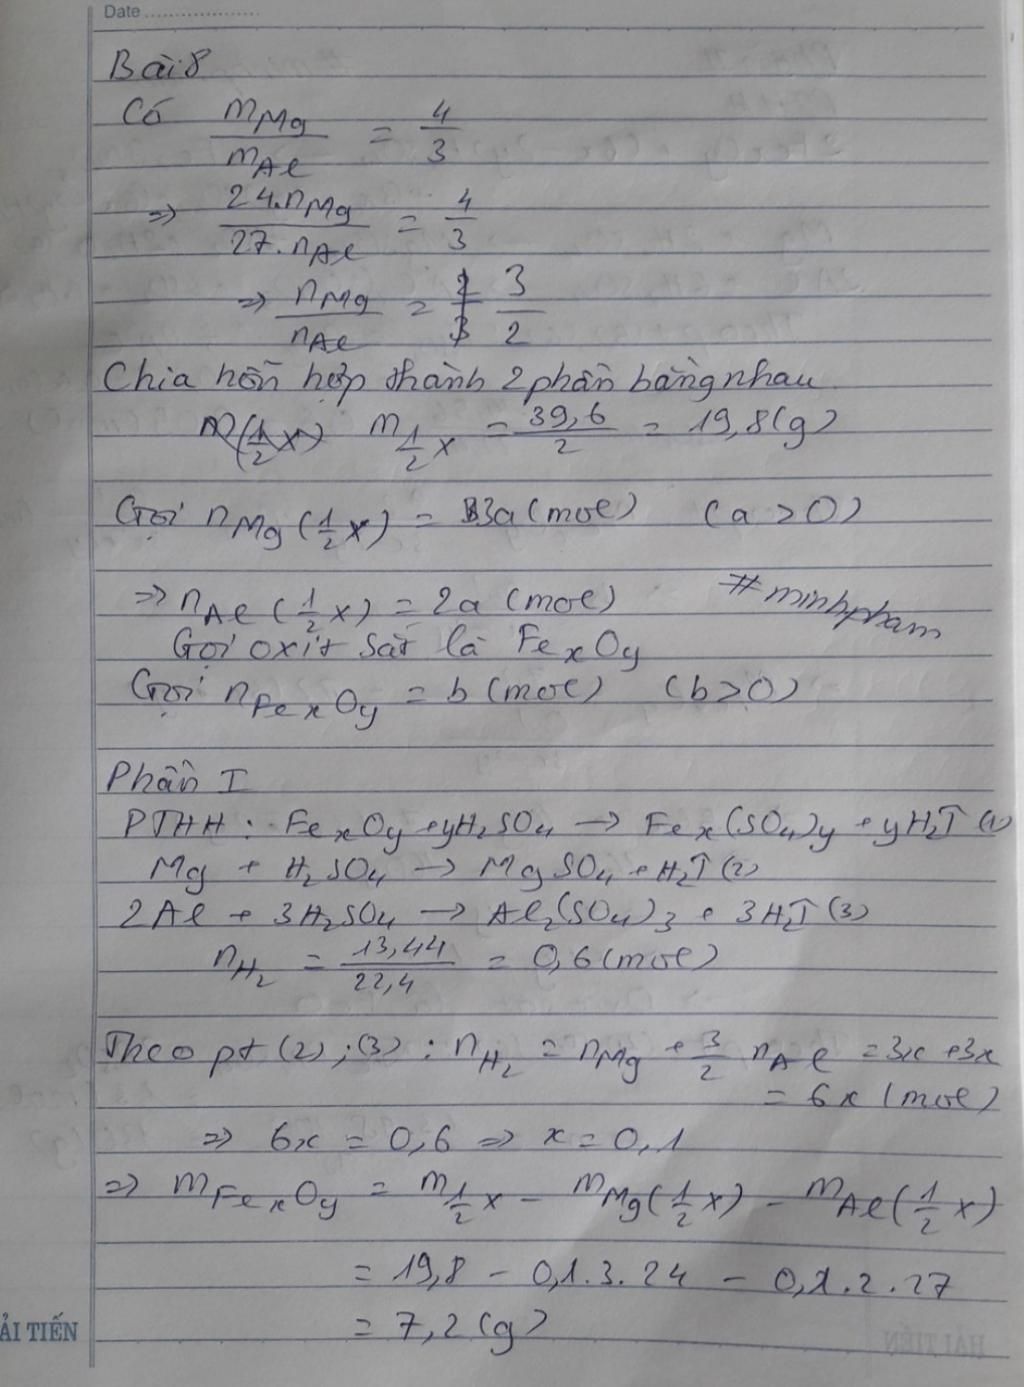 Date
Bài 8
Có m_Mg / m_Al = 4/3
=> 24.n_Mg / 27.n_Al = 4/3
=> n_Mg / n_Al = 3/2
Chia hỗn hợp thành 2 phần bằng nhau
m_(1/2 X) = 39,6/2 = 19,8 (g)
Gọi n_Mg (1/2 X) = 3a (mol) (a > 0)
=> n_Al (1/2 X) = 2a (mol)
#minhpham
Gọi oxit sắt là Fe_xO_y
Gọi n_Fe_xO_y = b (mol) (b > 0)
Phần I
PTHH: Fe_xO_y + yH₂SO₄ → Fe_x(SO₄)_y + yH₂↑ (1)
Mg + H₂SO₄ → MgSO₄ + H₂↑ (2)
2Al + 3H₂SO₄ → Al₂(SO₄)₃ + 3H₂↑ (3)
n_H₂ = 13,44/22,4 = 0,6 (mol)
Theo pt (2); (3): n_H₂ = n_Mg + 3/2 n_Al = 3x + 3x
= 6x (mol)
=> 6x = 0,6 => x = 0,1
=> m_Fe_xO_y = m_(1/2 X) - m_Mg (1/2 X) - m_Al (1/2 X)
= 19,8 - 0,1.3.24 - 0,1.2.27
= 7,2 (g)
ẢI TIẾN